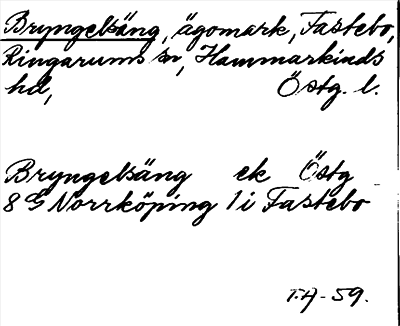 Bryngelsäng, ägomark, Fastebo,
Ringarums sn, Hammarkinds
hd, Östg. l.
Bryngelsäng ek Östg
8 G Norrköping 1 i Fastebo
T.A-59.